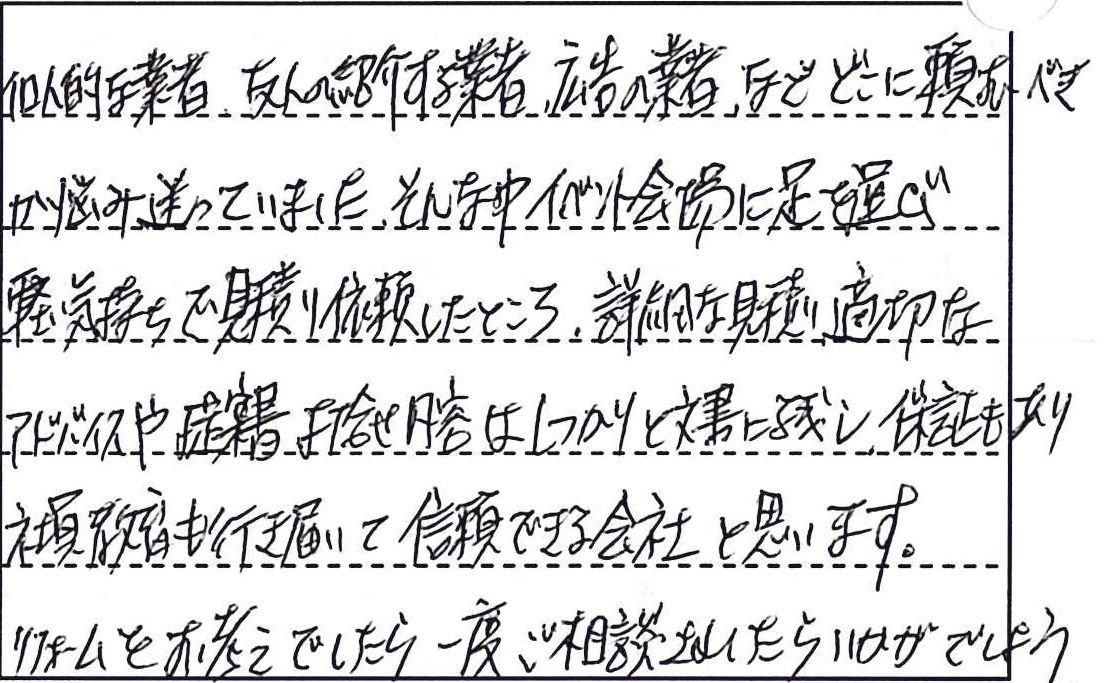 個人的な業者、友人の紹介する業者、広告の業者、など どこに頼むべき
か悩み迷っていました、そんな中イベント会場に足を運び
軽い気持ちで見積り依頼したところ、詳細な見積り、適切な
アドバイスや 提案書、打合せ内容はしっかりと文書に残し、保証もあり
社員教育も行き届いて 信頼できる会社 と思います。
リフォームをお考えでしたら 一度 ご相談されたらいかがでしょう